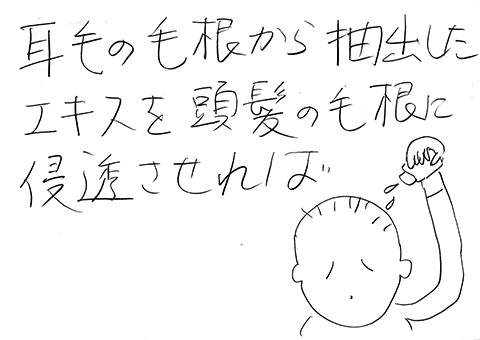 耳毛の毛根から抽出した
エキスを頭髪の毛根に
侵透させれば